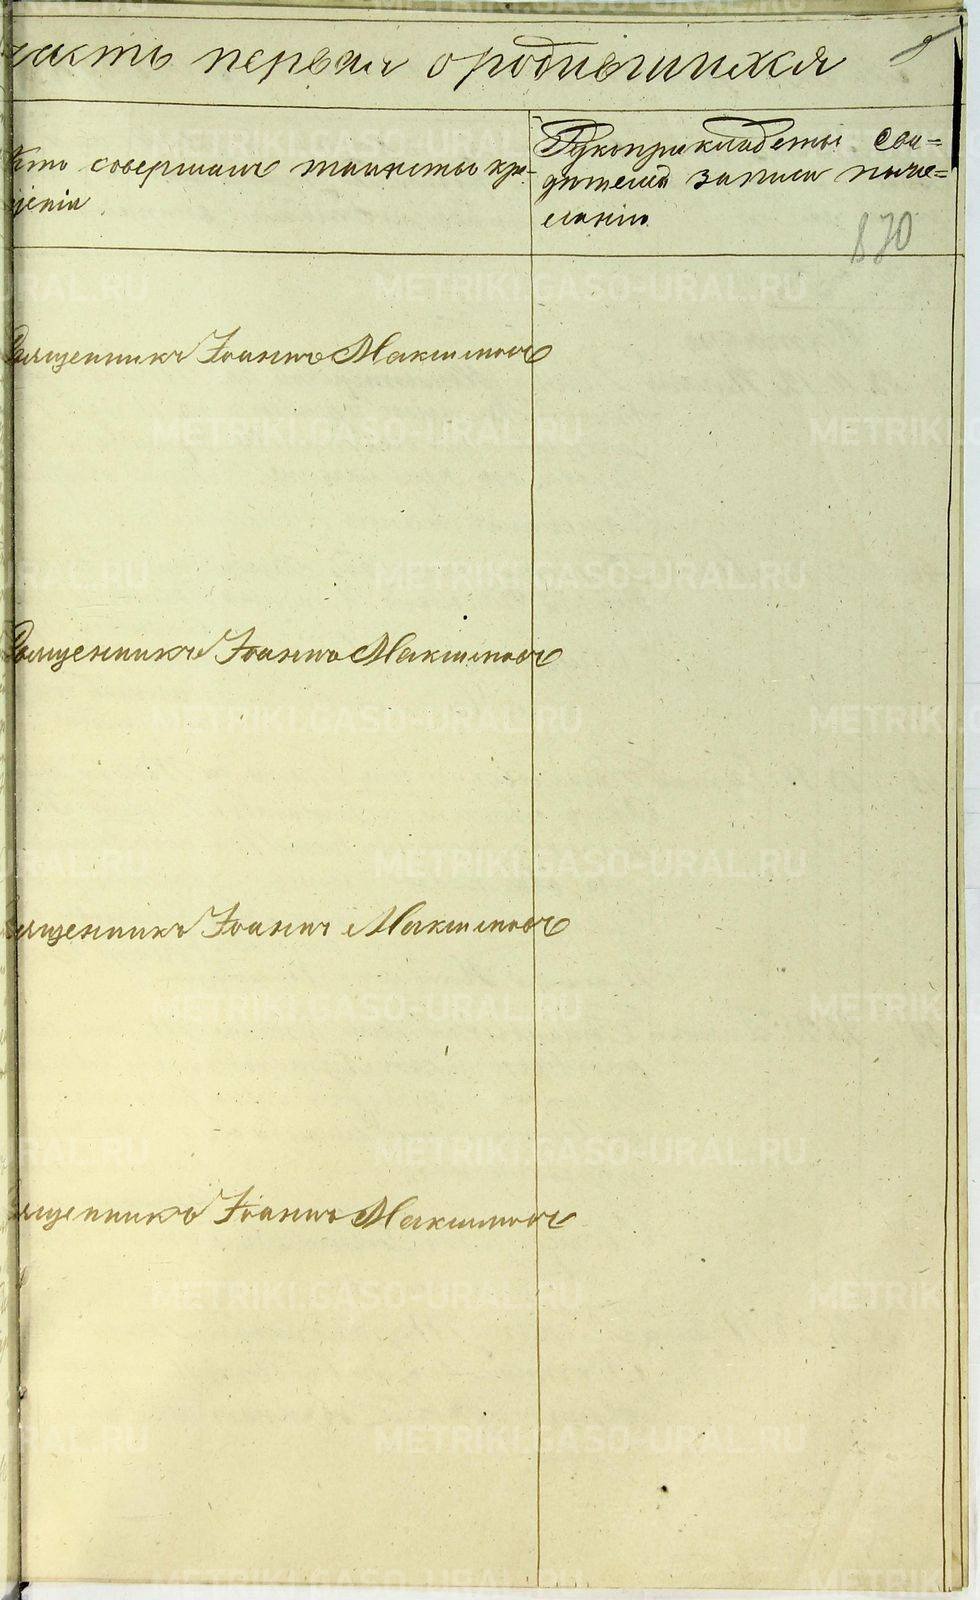 часть первая о родившихся
Кто совершалъ таинство кре-
щенія
Рукоприкладство сви-
детелей записи по же-
ланію
870
Священникъ Іоаннъ Максимовъ
Священникъ Іоаннъ Максимовъ
Священникъ Іоаннъ Максимовъ
Священникъ Іоаннъ Максимовъ
METRIKI.GASO-URAL.RU